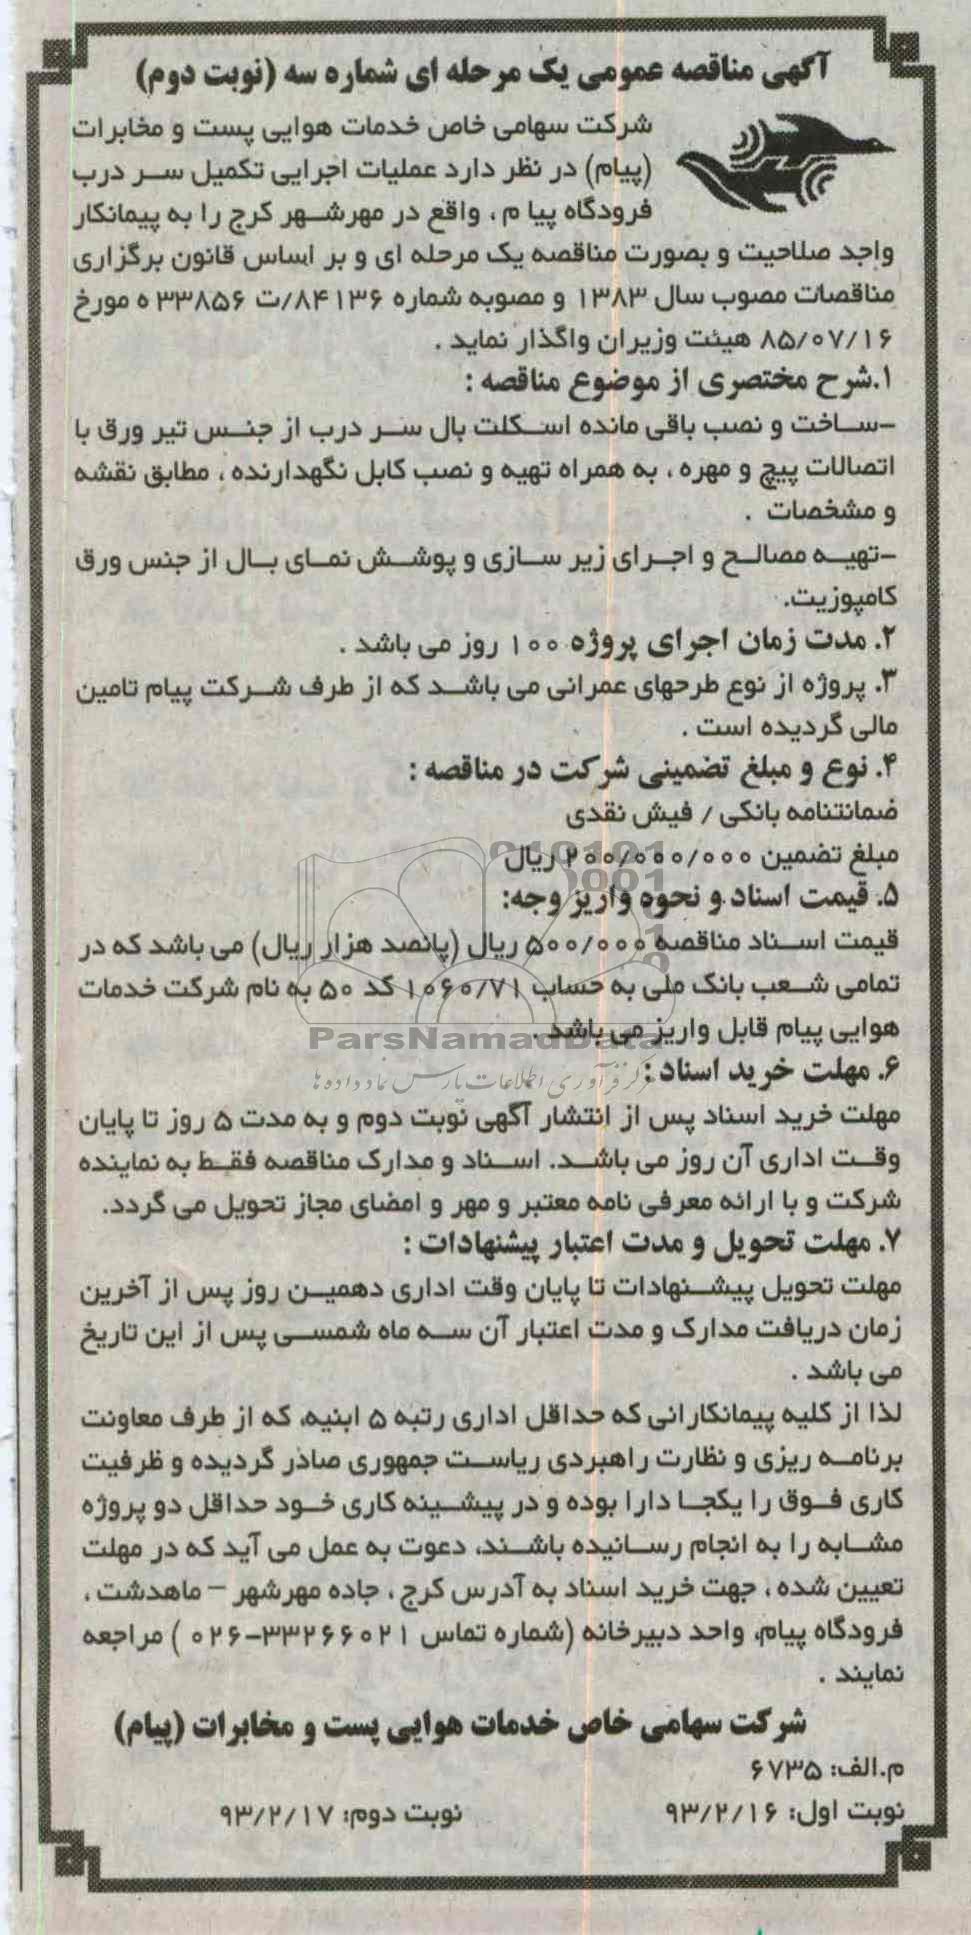 آگهی مناقصه عمومی یک مرحله ای شماره سه (نوبت دوم)
شرکت سهامی خاص خدمات هوایی پست و مخابرات
(پیام) در نظر دارد عملیات اجرایی تکمیل سر درب
فرودگاه پیا م ، واقع در مهرشهر کرج را به پیمانکار
واجد صلاحیت و بصورت مناقصه یک مرحله ای و بر اساس قانون برگزاری
مناقصات مصوب سال ۱۳۸۳ و مصوبه شماره ۸۴۱۳۶/ت ۳۳۸۵۶ ه مورخ
۸۵/۰۷/۱۶ هیئت وزیران واگذار نماید .
۱.شرح مختصری از موضوع مناقصه :
-ساخت و نصب باقی مانده اسکلت بال سر درب از جنس تیر ورق با
اتصالات پیچ و مهره ، به همراه تهیه و نصب کابل نگهدارنده ، مطابق نقشه
و مشخصات .
-تهیه مصالح و اجرای زیر سازی و پوشش نمای بال از جنس ورق
کامپوزیت.
۲. مدت زمان اجرای پروژه ۱۰۰ روز می باشد .
۳. پروژه از نوع طرحهای عمرانی می باشد که از طرف شرکت پیام تامین
مالی گردیده است .
۴. نوع و مبلغ تضمینی شرکت در مناقصه :
ضمانتنامه بانکی / فیش نقدی
مبلغ تضمین ۲۰۰/۰۰۰/۰۰۰ ریال
۵. قیمت اسناد و نحوه واریز وجه:
قیمت اسناد مناقصه ۵۰۰/۰۰۰ ریال (پانصد هزار ریال) می باشد که در
تمامی شعب بانک ملی به حساب ۱۰۶۰/۷۱ کد ۵۰ به نام شرکت خدمات
هوایی پیام قابل واریز می باشد .
ParsNamadData
مرکز فرآوری اطلاعات پارس نماد داده ها
۶. مهلت خرید اسناد :
مهلت خرید اسناد پس از انتشار آگهی نوبت دوم و به مدت ۵ روز تا پایان
وقت اداری آن روز می باشد. اسناد و مدارک مناقصه فقط به نماینده
شرکت و با ارائه معرفی نامه معتبر و مهر و امضای مجاز تحویل می گردد.
۷. مهلت تحویل و مدت اعتبار پیشنهادات :
مهلت تحویل پیشنهادات تا پایان وقت اداری دهمین روز پس از آخرین
زمان دریافت مدارک و مدت اعتبار آن سه ماه شمسی پس از این تاریخ
می باشد .
لذا از کلیه پیمانکارانی که حداقل اداری رتبه ۵ ابنیه، که از طرف معاونت
برنامه ریزی و نظارت راهبردی ریاست جمهوری صادر گردیده و ظرفیت
کاری فوق را یکجا دارا بوده و در پیشینه کاری خود حداقل دو پروژه
مشابه را به انجام رسانیده باشند، دعوت به عمل می آید که در مهلت
تعیین شده ، جهت خرید اسناد به آدرس کرج ، جاده مهرشهر – ماهدشت ،
فرودگاه پیام، واحد دبیرخانه (شماره تماس ۳۳۲۶۶۰۲۱-۰۲۶ ) مراجعه
نمایند .
شرکت سهامی خاص خدمات هوایی پست و مخابرات (پیام)
م.الف: ۶۷۳۵
نوبت اول: ۹۳/۲/۱۶ نوبت دوم: ۹۳/۲/۱۷